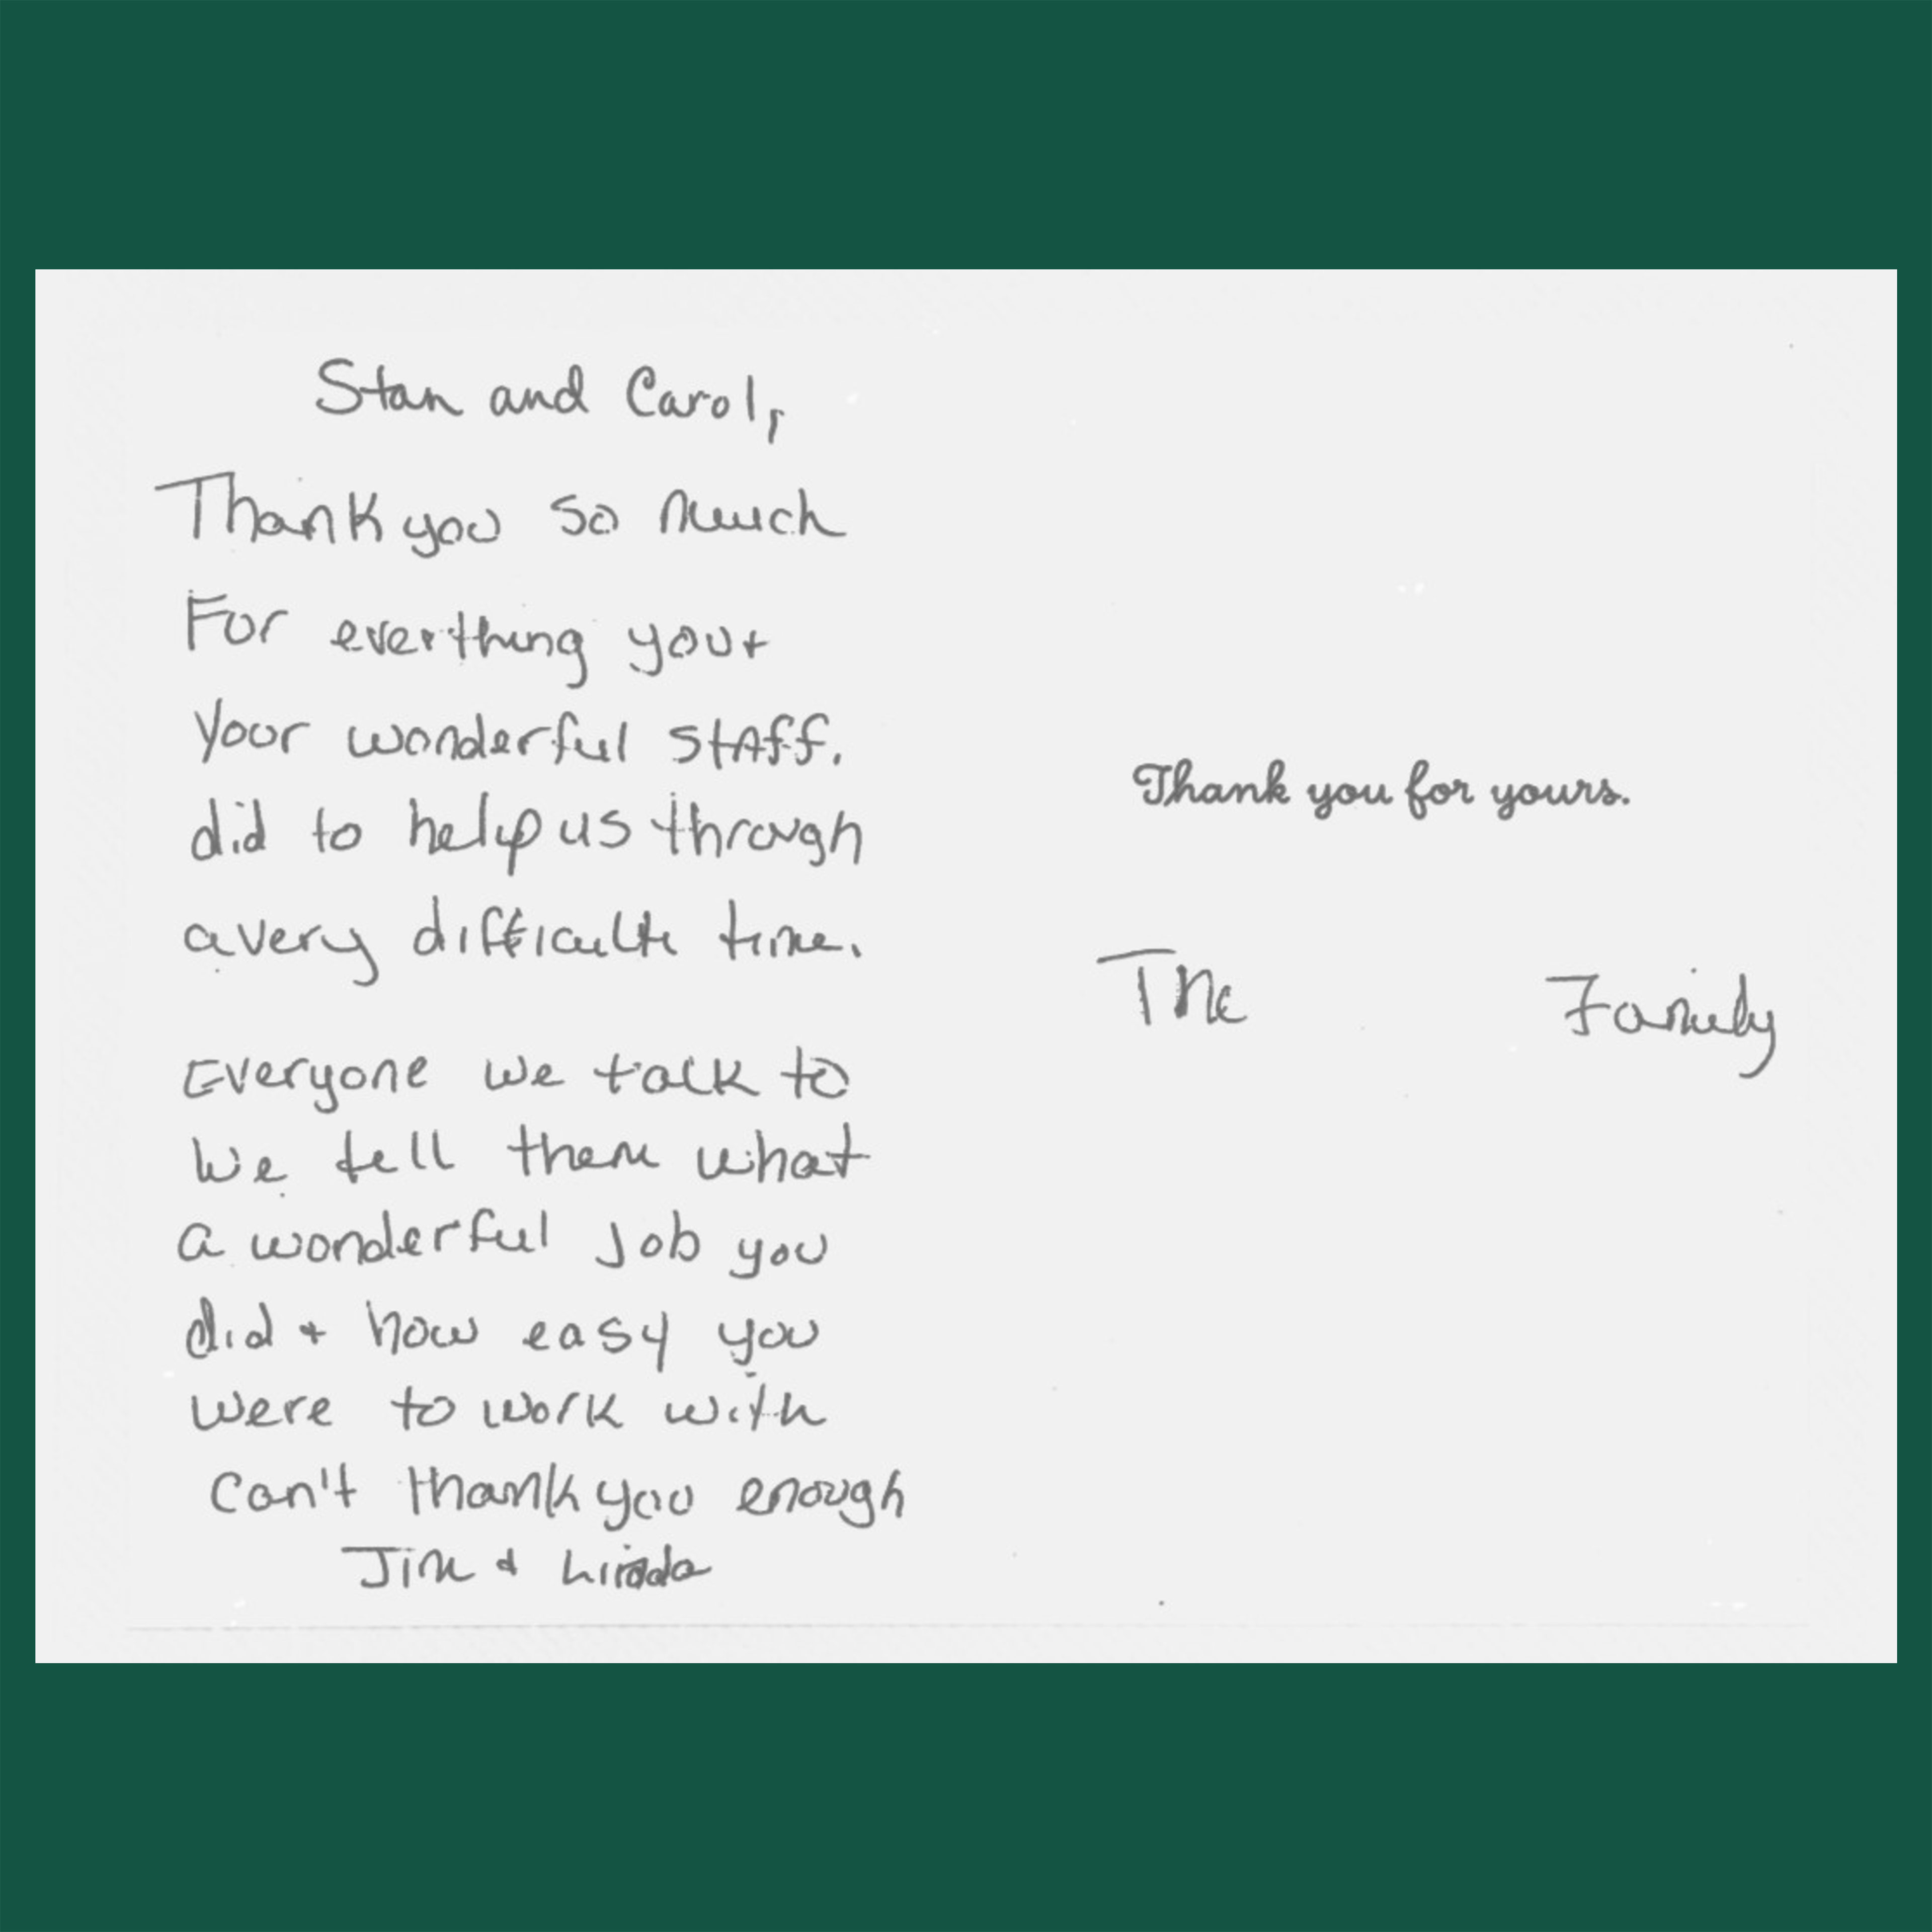 Stan and Carol,
Thank you so much
For everthing you +
your wonderful staff.
did to help us through
a very difficult time.
Everyone we talk to
we tell them what
a wonderful Job you
did + how easy you
were to work with
can't thank you enough
Jim & Linda
Thank you for yours.
The Family